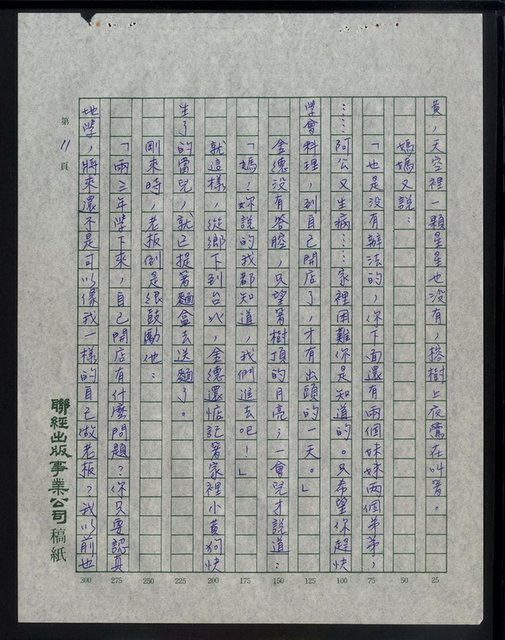 黃，天空裡一顆星星也沒有，榕樹上夜鶯在叫著。
媽媽又說：
「也是沒有辦法的，你下面還有兩個妹妹兩個弟弟，
……阿公又生病……家裡困難你是知道的。只希望你趕快
學會料理，到自己開店了，才有出頭的一天。」
金德沒有答腔，只望著樹頂的月亮；一會兒才說道：
「媽！妳說的我都知道，我們進去吧！」
就這樣，從鄉下到台北，金德還惦記著家裡小黃狗快
生了的當兒，就已提著麵盒去送麵了。
剛來時，老板倒是很鼓勵他：
「兩三年學下來，自己開店有什麼問題？你只要認真
地學，將來還不是可以像我一樣的自己做老板？我以前也
第11頁
聯經出版事業公司 稿紙
25
50
75
100
125
150
175
200
225
250
275
300